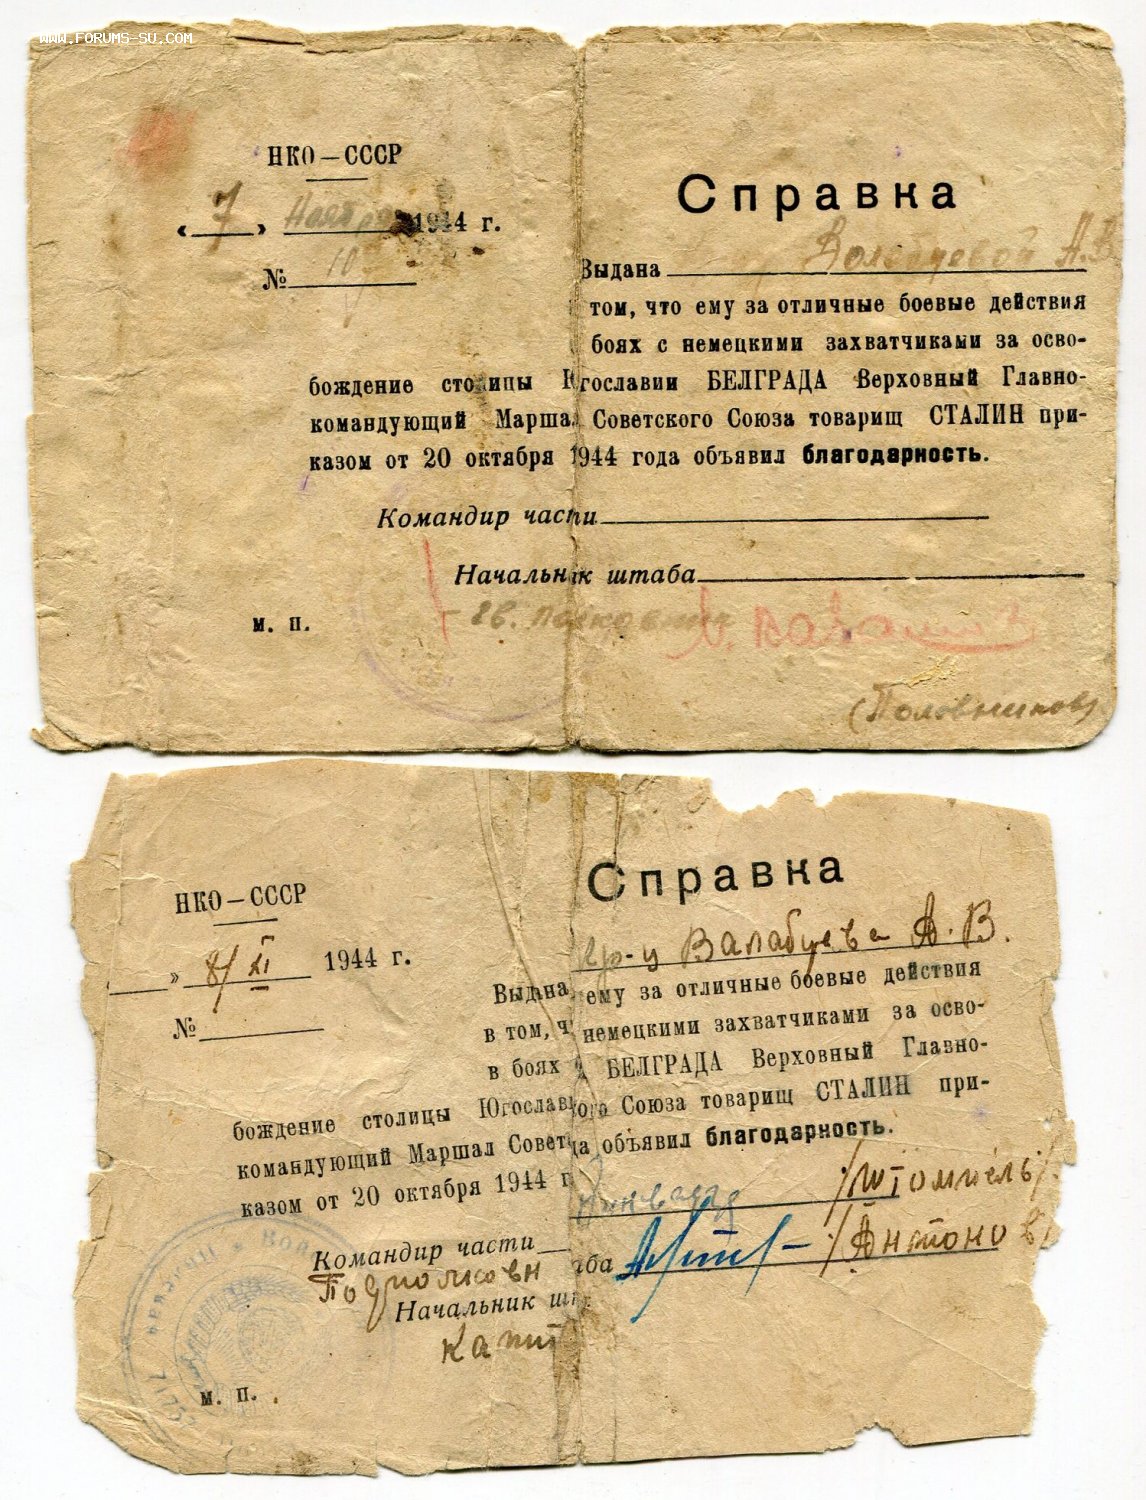 WWW.FORUMS-SU.COM
НКО — СССР
« 7 » Ноября 1944 г.
№ 10
Справка
Выдана А.В
том, что ему за отличные боевые действия
боях с немецкими захватчиками за осво-
бождение столицы Югославии БЕЛГРАДА Верховный Главно-
командующий Маршал Советского Союза товарищ СТАЛИН при-
казом от 20 октября 1944 года объявил благодарность.
Командир части
Начальник штаба
гв. полковник
м. п.
(Половников)
НКО — СССР
» 8/XI 1944 г.
№
Справка
Выдана кр-ц Валабуева А. В.
в том, ч ему за отличные боевые действия
в боях немецкими захватчиками за осво-
бождение столицы Югослав БЕЛГРАДА Верховный Главно-
командующий Маршал Совет ого Союза товарищ СТАЛИН при-
казом от 20 октября 1944 г да объявил благодарность.
Командир части /Штомпель/
Подполковн
Начальник шт ба /Антонов/
Капит
м. п.